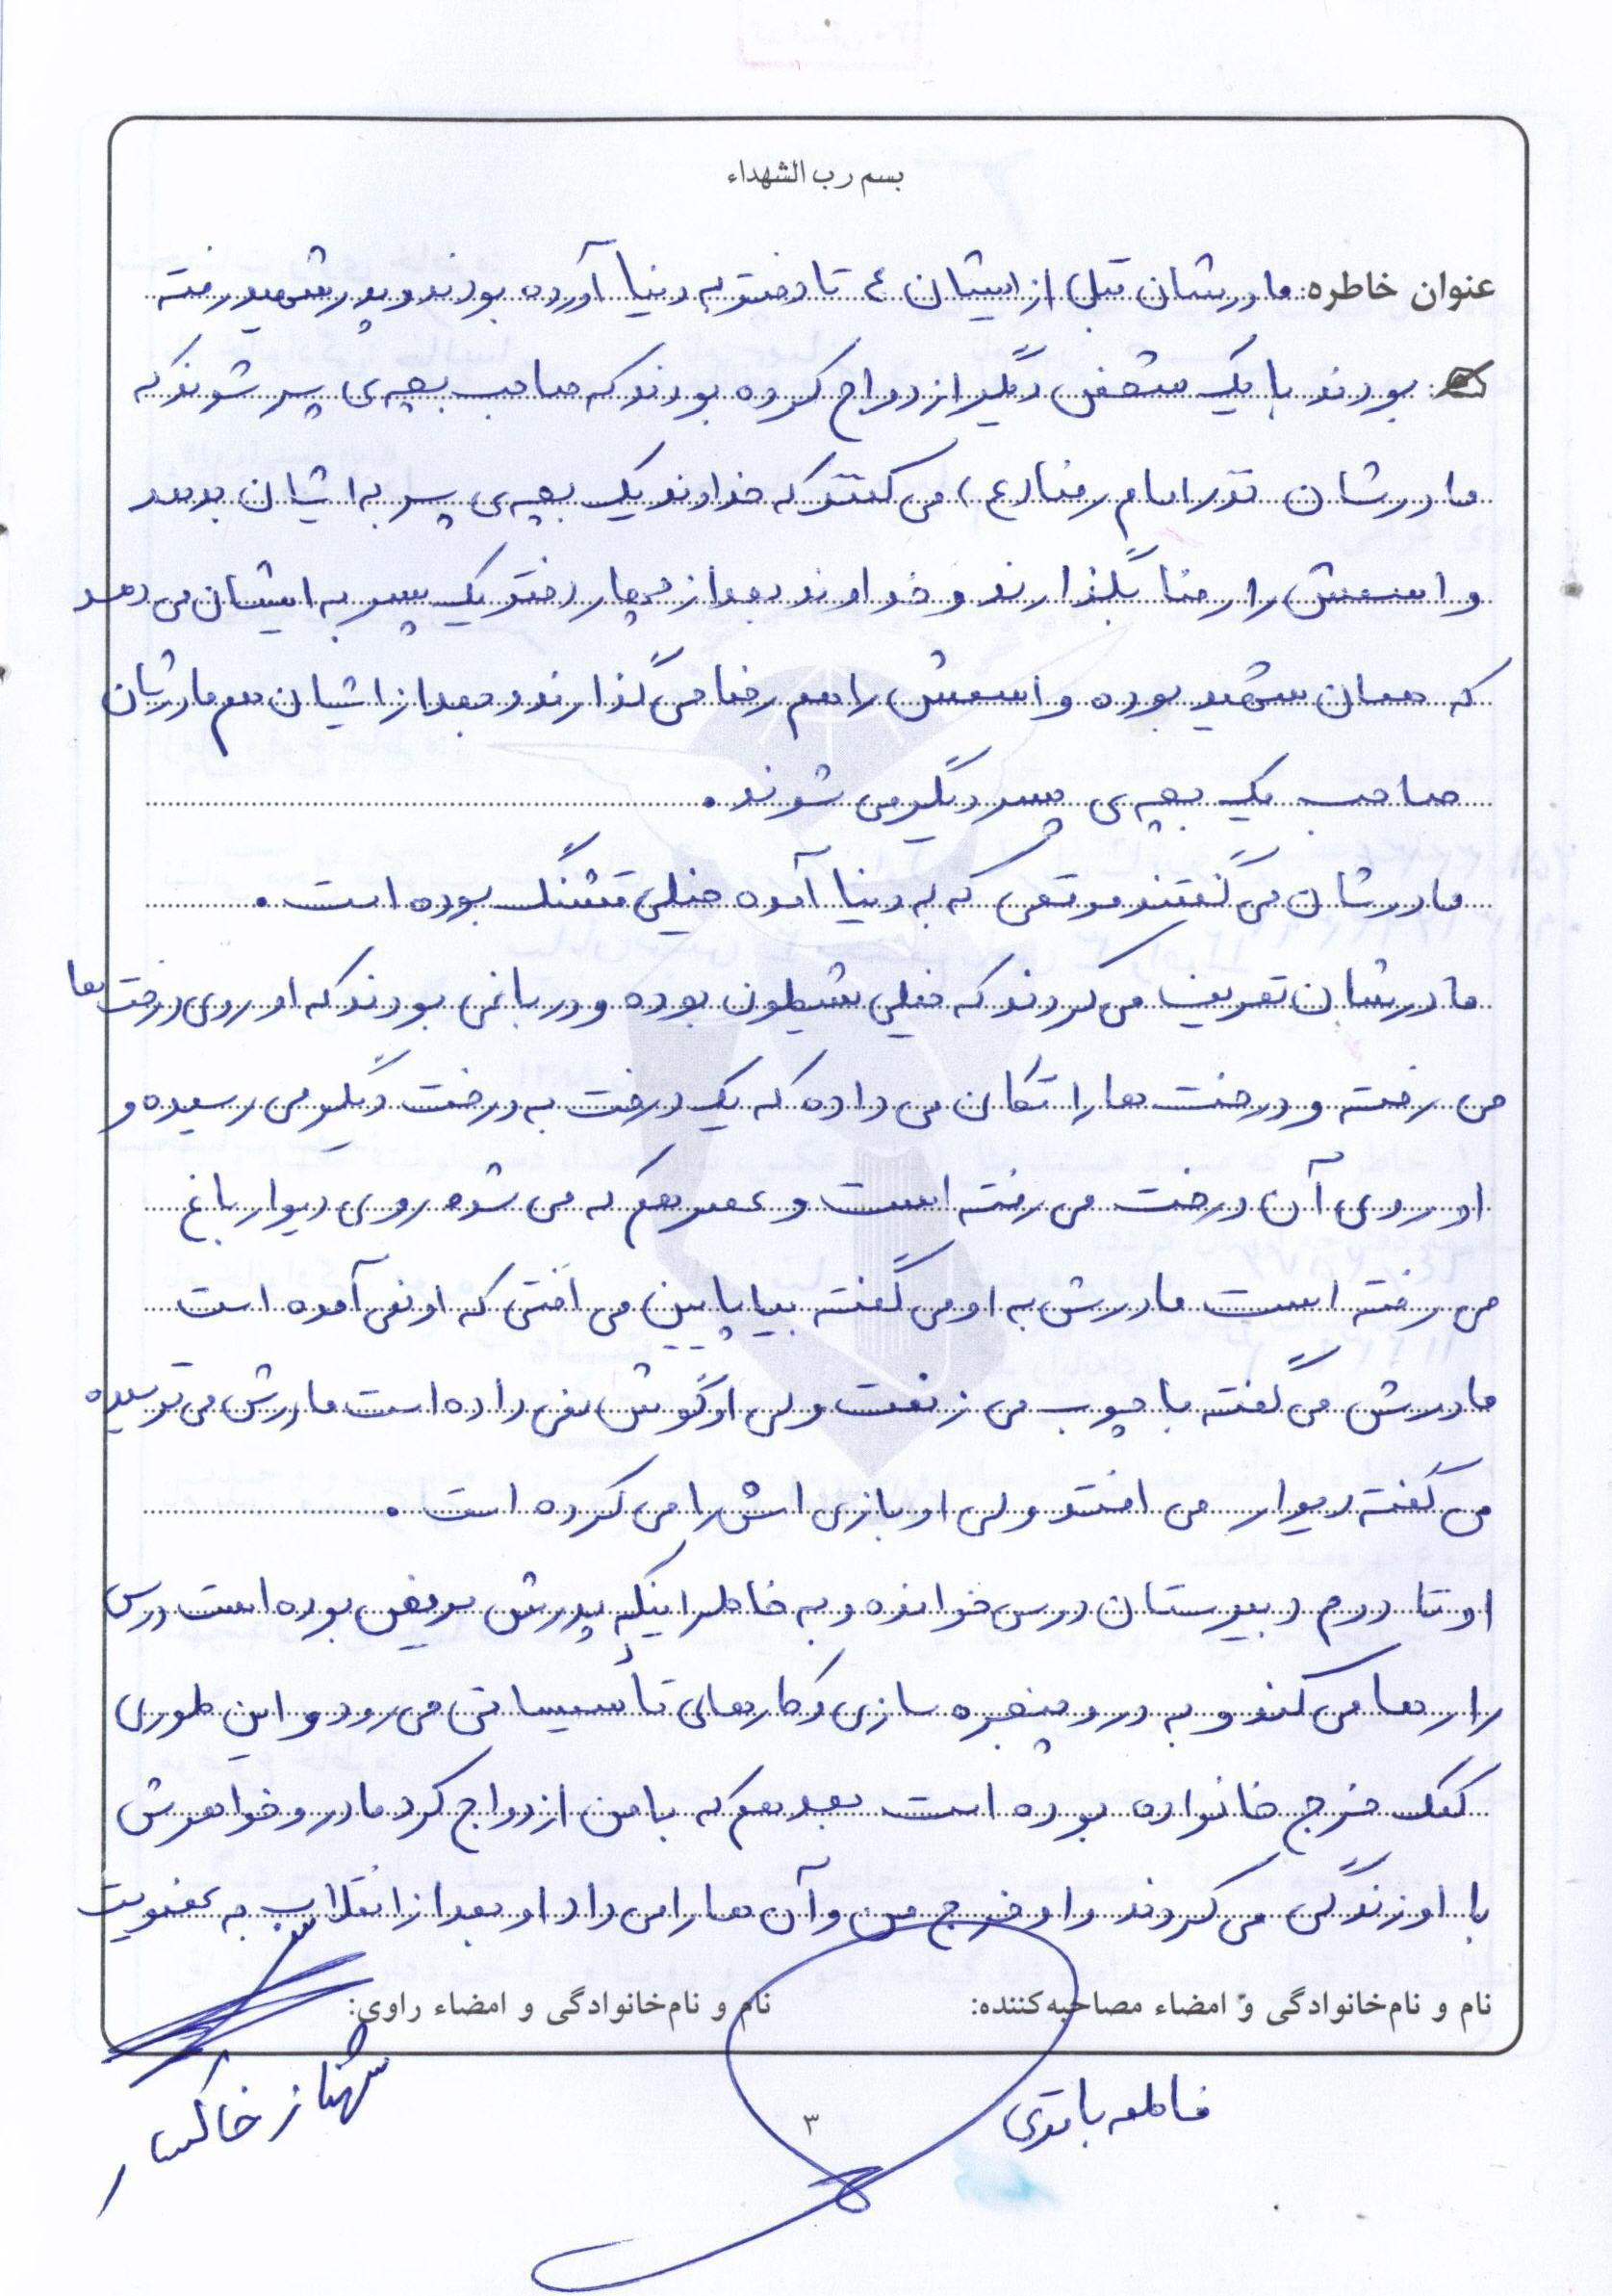 بسم رب الشهداء
عنوان خاطره: مادرشان قبل از ایشان ٤ تا دختر به دنیا آورده بودند و پدر شهید رفته
بودند با یک شخص دیگر ازدواج کرده بودند که صاحب بچه‌ی پسر شوند که
مادرشان نذر امام رضا (ع) می کنند که خداوند یک بچه‌ی پسر به ایشان بدهد
و اسمش را رضا بگذارند و خداوند بعد از چهار دختر یک پسر به ایشان می دهد
که همان شهید بوده و اسمش را هم رضا می گذارند و بعد از ایشان هم مادرشان
صاحب یک بچه‌ی پسر دیگر می شوند.
مادرشان می گفتند موقعی که به دنیا آمده خیلی قشنگ بوده است.
مادرشان تعریف می کردند که خیلی شیطون بوده و در باغی بودند که او روی درخت ها
می رفته و درخت ها را تکان می داده که یک درخت به درخت دیگر می رسیده و
او روی آن درخت می رفته است و عصر هم که می شده روی دیوار باغ
می رفته است مادرش به او می گفته بیا پایین می افتی که او نمی آمده است
مادرش می گفته با چوب می زنمت ولی او گوش نمی داده است مادرش می ترسیده
می گفته دیوار می افتد ولی او بازی اش را می کرده است.
او تا دوم دبیرستان درس خوانده و به خاطر اینکه پدرش مریض بوده است درس
را رها می کند و به در و پنجره سازی و کارهای تأسیساتی می رود و این طوری
کمک خرج خانواده بوده است بعد هم که با من ازدواج کرد مادر و خواهرش
با او زندگی می کردند و او خرج من و آن ها را می داد او بعد از انقلاب به عضویت
نام و نام‌خانوادگی و امضاء مصاحبه‌کننده:
نام و نام‌خانوادگی و امضاء راوی:
فاطمه
شهناز خاکسار
۳